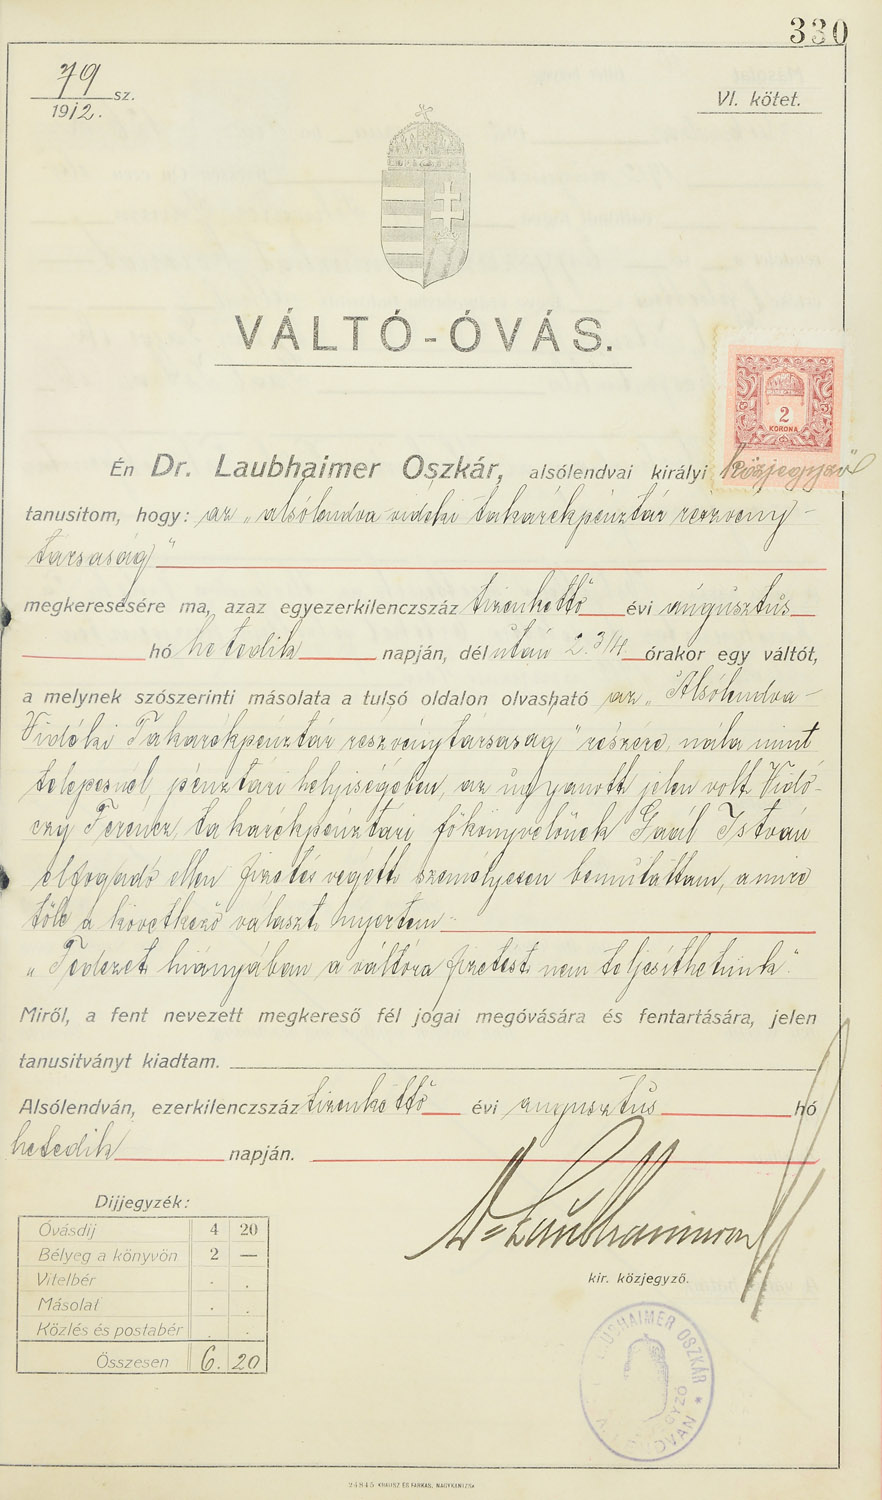 330
79 sz.
1912.
VI. kötet.
VÁLTÓ-ÓVÁS.
2
KORONA
Én Dr. Laubhaimer Oszkár, alsólendvai királyi közjegyző
tanusitom, hogy: az „alsólendva-vidéki takarékpénztár részvény-
társaság"
megkeresésére ma, azaz egyezerkilenczszáz tizenkettő évi augusztus
hó hetedik napján, dél után 2.3/4 órakor egy váltót,
a melynek szószerinti másolata a tulsó oldalon olvasható az „Alsólendva-
Vidéki Takarékpénztár részvénytársaság" részére, nála mint
telepesnél, pénztári helyiségében, az ugyanott jelen volt Vidó-
czy Ferencz takarékpénztári főkönyvelőnek Gaál István
elfogadó ellen fizetés végett személyesen bemutattam, a mire
tőle a következő választ nyertem
„Fedezet hiányában a váltóra fizetést nem teljesíthetünk."
Miről, a fent nevezett megkereső fél jogai megóvására és fentartására, jelen
tanusitványt kiadtam.
Alsólendván, ezerkilenczszáz tizenkettő évi augusztus hó
hetedik napján.
Dr Laubhaimer
kir. közjegyző.
Dijjegyzék:
Óvásdij 4 20
Bélyeg a könyvön 2 —
Vitelbér . .
Másolat . .
Közlés és postabér . .
Összesen 6. 20
LAUBHAIMER OSZKÁR
24845 KRAUSZ ÉS FARKAS, NAGYKANIZSA